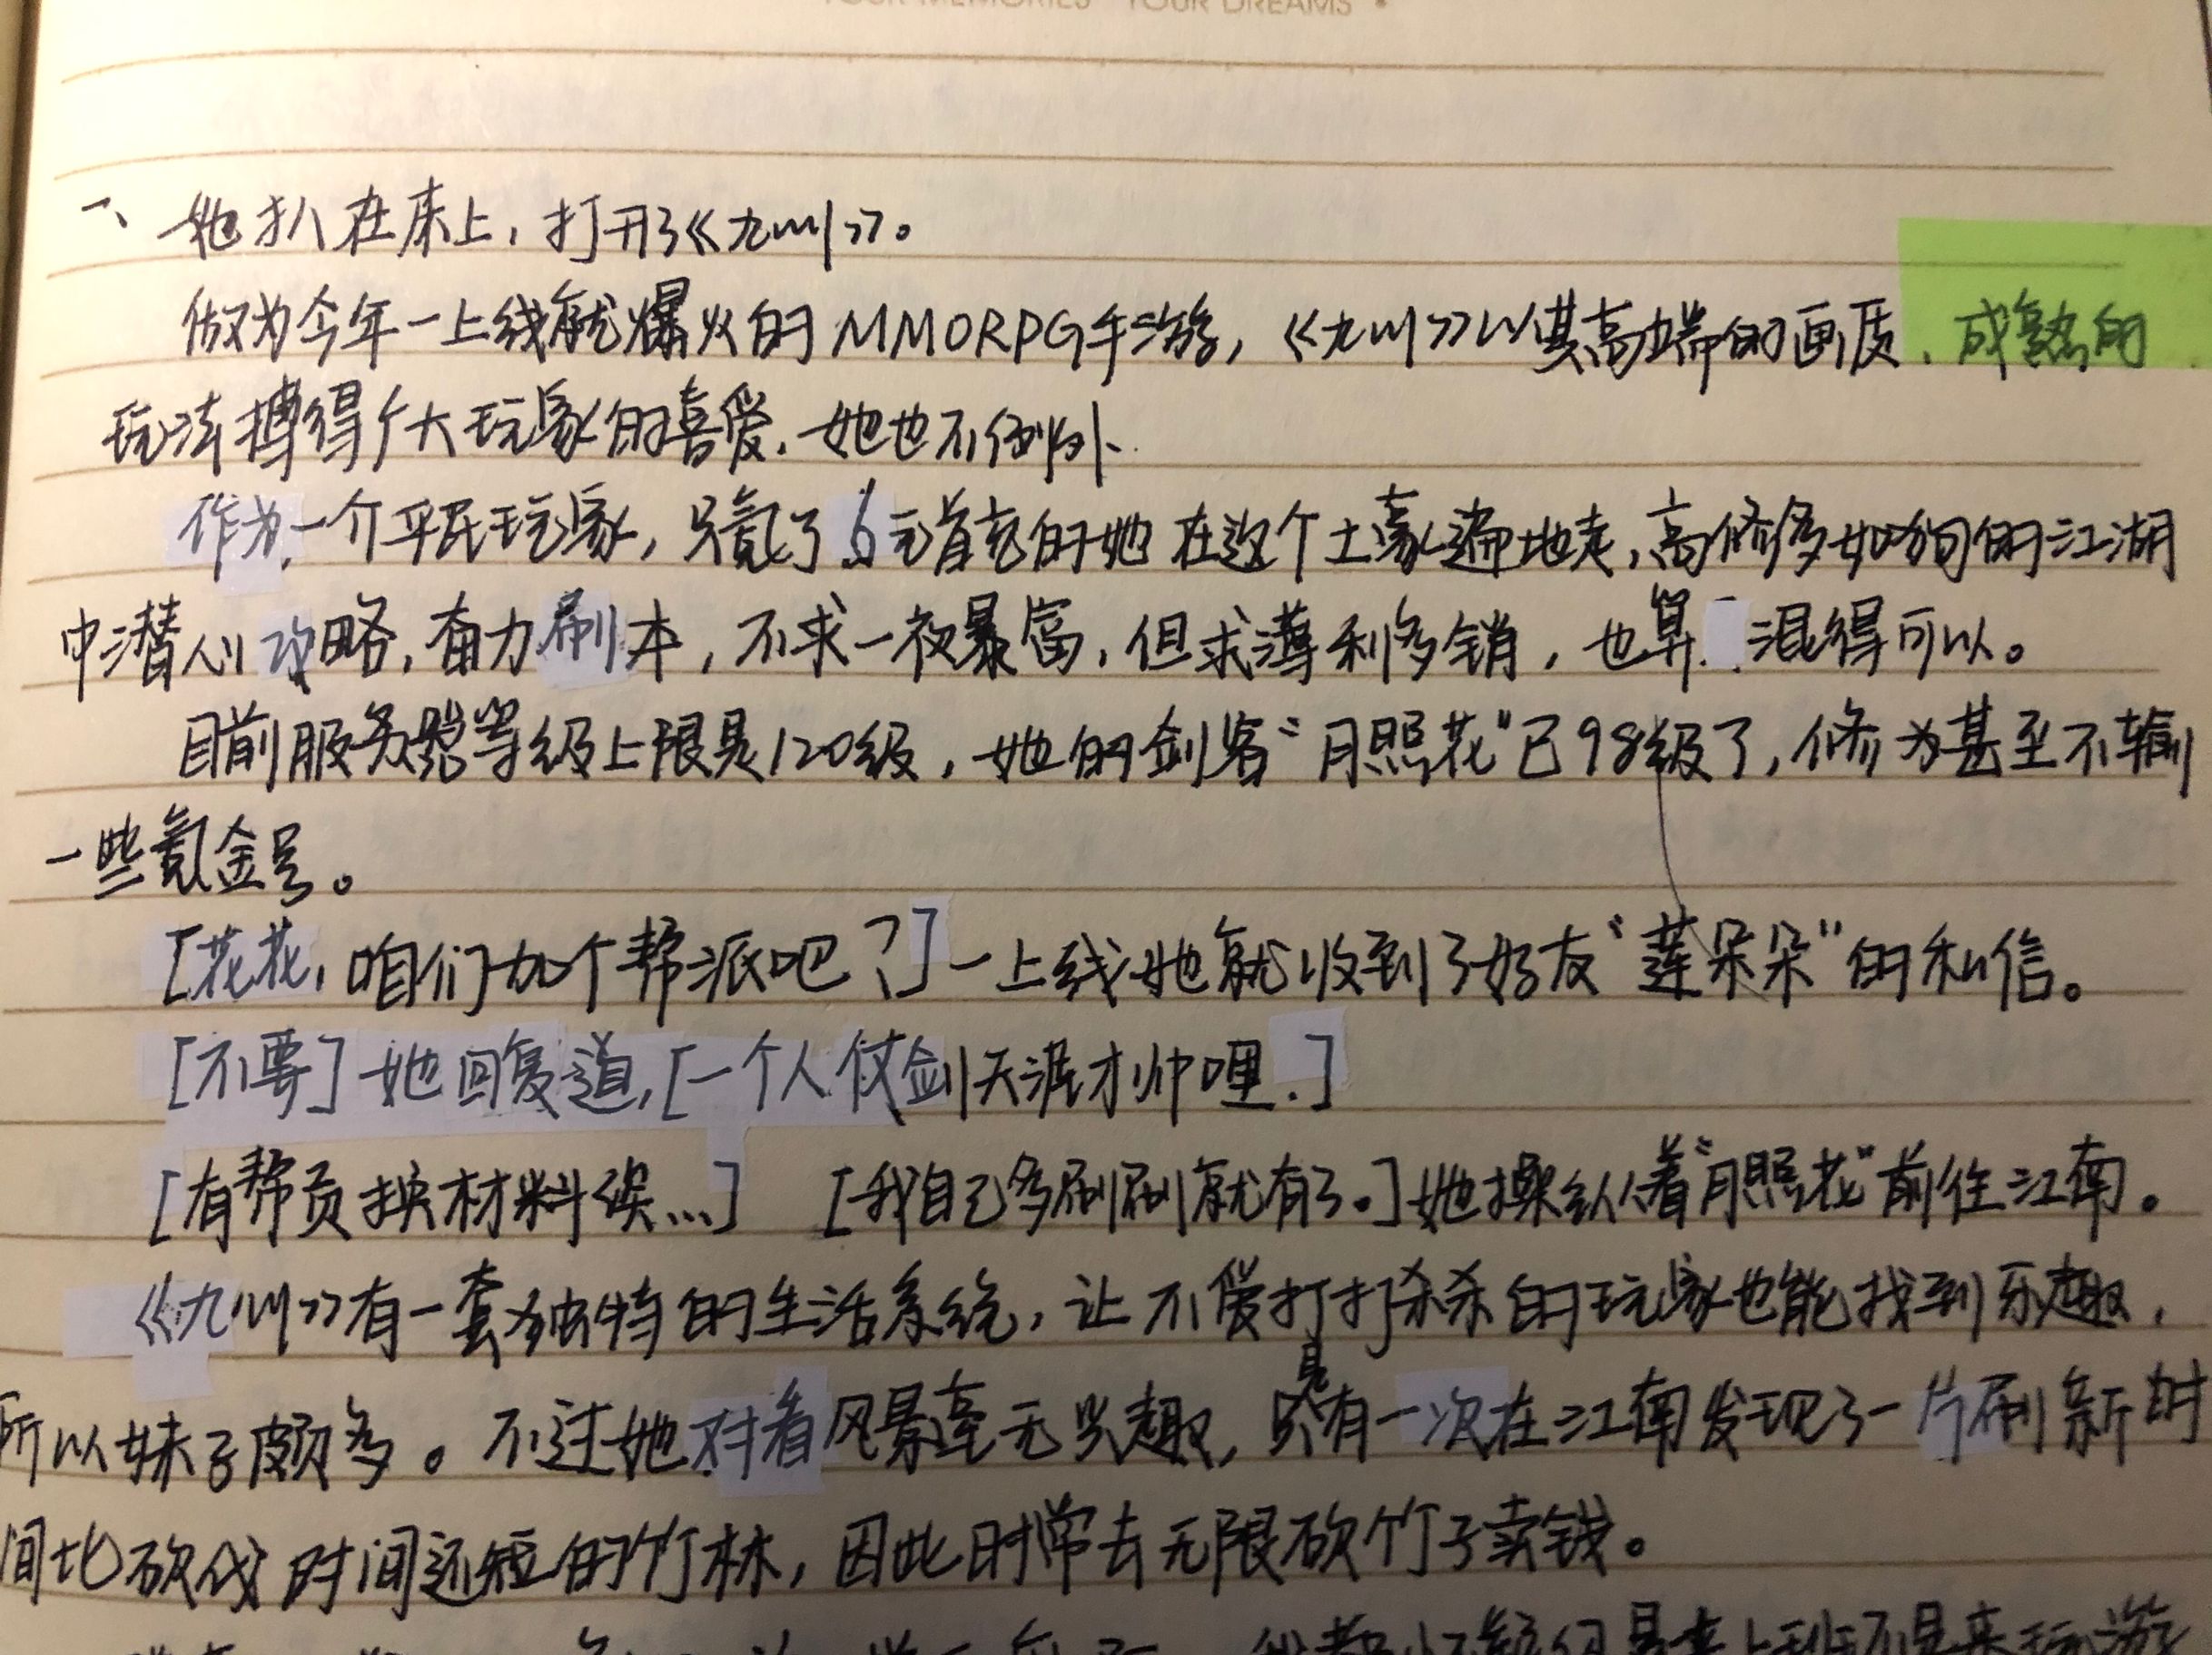 YOUR MEMORIES YOUR DREAMS
一、她扒在床上，打开了《九州》。
做为今年一上线就爆火的MMORPG手游，《九州》以其高端的画质、成熟的
玩法搏得广大玩家的喜爱．她也不例外．
作为一介平民玩家，只氪了6元首充的她在这个土豪遍地走，高修多如狗的江湖
中潜心攻略，奋力刷本，不求一夜暴富，但求薄利多销，也算混得可以。
目前服务器等级上限是120级，她的剑客“月照花”已98级了，修为甚至不输
一些氪金号。
[花花，咱们加个帮派吧？]一上线她就收到了好友“莲朵朵”的私信。
[不要]她回复道，[一个人仗剑天涯才帅哩．]
[有帮贡换材料诶…] [我自己多刷刷就有了。]她操纵着“月照花”前往江南。
《九州》有一套独特的生活系统，让不爱打打杀杀的玩家也能找到乐趣，
所以妹子颇多。不过她对看风景毫无兴趣，只是有一次在江南发现了一片刷新时
间比砍伐时间还短的竹林，因此时常去无限砍竹子卖钱。